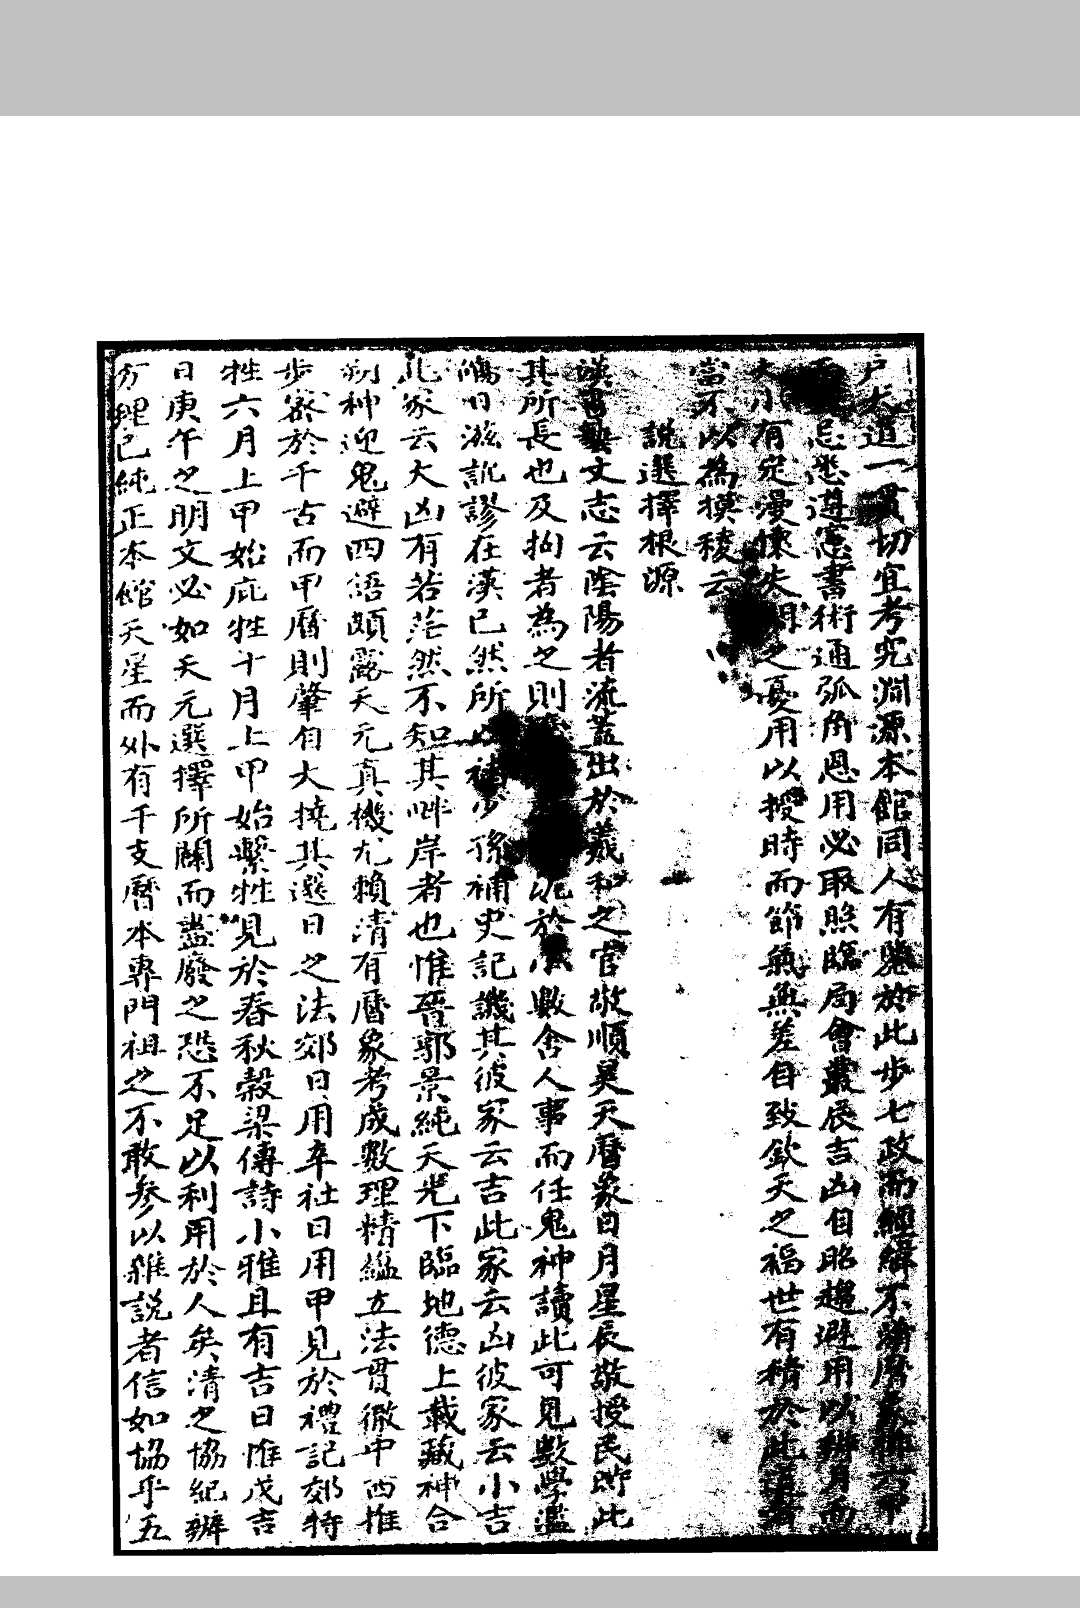 戶大道一貫切宜考究淵源本館同人有鑒於此步七政而經緯不淆曆象
忌悉遵憲書術通弧角恩用必取照臨局會叢辰吉凶自昭趨避用以辨月而
大小有定漫懷失閏之憂用以授時而節氣無差自致欽天之福世有精於此道者
當不以為摸稜云
說選擇根源
漢書藝文志云陰陽者流蓋出於羲和之官敬順昊天曆象日月星辰敬授民時此
其所長也及拘者為之則於小數舍人事而任鬼神讀此可見數學濫
觴日滋訛謬在漢已然所以補少孫補史記譏其彼家云吉此家云凶彼家云小吉
此家云大凶有若茫然不知其畔岸者也惟晉郭景純天光下臨地德上載藏神合
朔神迎鬼避四語頗露天元真機尤賴清有曆象考成數理精蘊立法貫徹中西推
步密於千古而甲曆則肇自大撓其選日之法郊日用辛社日用甲見於禮記郊特
牲六月上甲始庀牲十月上甲始繫牲見於春秋穀梁傳詩小雅且有吉日惟戊吉
日庚午之明文必如天元選擇所關而盡廢之恐不足以利用於人矣清之協紀辨
方純已純正本館天星而外有千支曆本專門祖之不敢參以雜說者信如協乎五